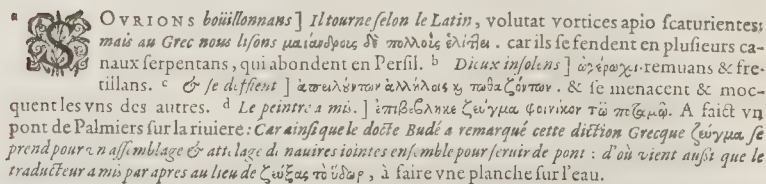 a SOVRIONS boüillonnans ] Il tourne selon le Latin, volutat vortices apio scaturientes:
mais au Grec nous lisons μαιάνδρους δὲ πολλοὺς ἑλίττει. car ils se fendent en plusieurs ca-
naux serpentans, qui abondent en Persil. b Dieux insolens ] ἀγέρωχοι. remuans & fre-
tillans. c & se deffient ] ἀπειλούντων ἀλλήλοις κ τωθαζόντων. & se menacent & moc-
quent les vns des autres. d Le peintre a mis. ] ἐπιβέβληκε ζεύγμα φοινίκων τῷ ποταμῷ. A faict vn
pont de Palmiers sur la riuiere: Car ainsi que le docte Budé a remarqué cette diction Grecque ζεύγμα se
prend pour vn assemblage & attelage de nauires iointes ensemble pour seruir de pont : d'où vient aussi que le
traducteur a mis par apres au lieu de ζεύξας τὸ ὕδωρ, à faire vne planche sur l'eau.